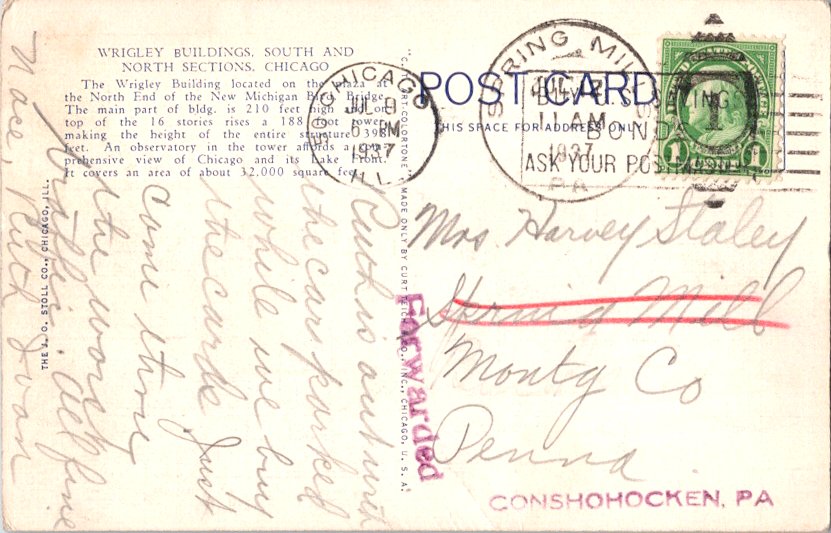 WRIGLEY BUILDINGS, SOUTH AND
NORTH SECTIONS, CHICAGO
The Wrigley Building located on the plaza at
the North End of the New Michigan Blvd. Bridge.
The main part of bldg. is 210 feet high and on
top of the 16 stories rises a 188 foot tower
making the height of the entire structure 398
feet. An observatory in the tower affords a com-
prehensive view of Chicago and its Lake Front.
It covers an area of about 32,000 square feet.
Ruth is out with
the cars parked
while we buy
the cards Just
come thru
the worst
traffic. All fine
Nace, Ruth Joan
THE J. O. STOLL CO., CHICAGO, ILL.
"C. T. ART-COLORTONE" MADE ONLY BY CURT TEICH & CO., INC., CHICAGO, U. S. A.
CHICAGO
JUL 9
6 PM
1937
ILL.
POST CARD
THIS SPACE FOR ADDRESS ONLY
SPRING MILLS
JUL 12
11 AM
1937
PA
ASK YOUR POSTMASTER
1
1
Mrs. Harvey Staley
Spring Mill
Montg Co
Penna.
Forwarded
CONSHOHOCKEN, PA